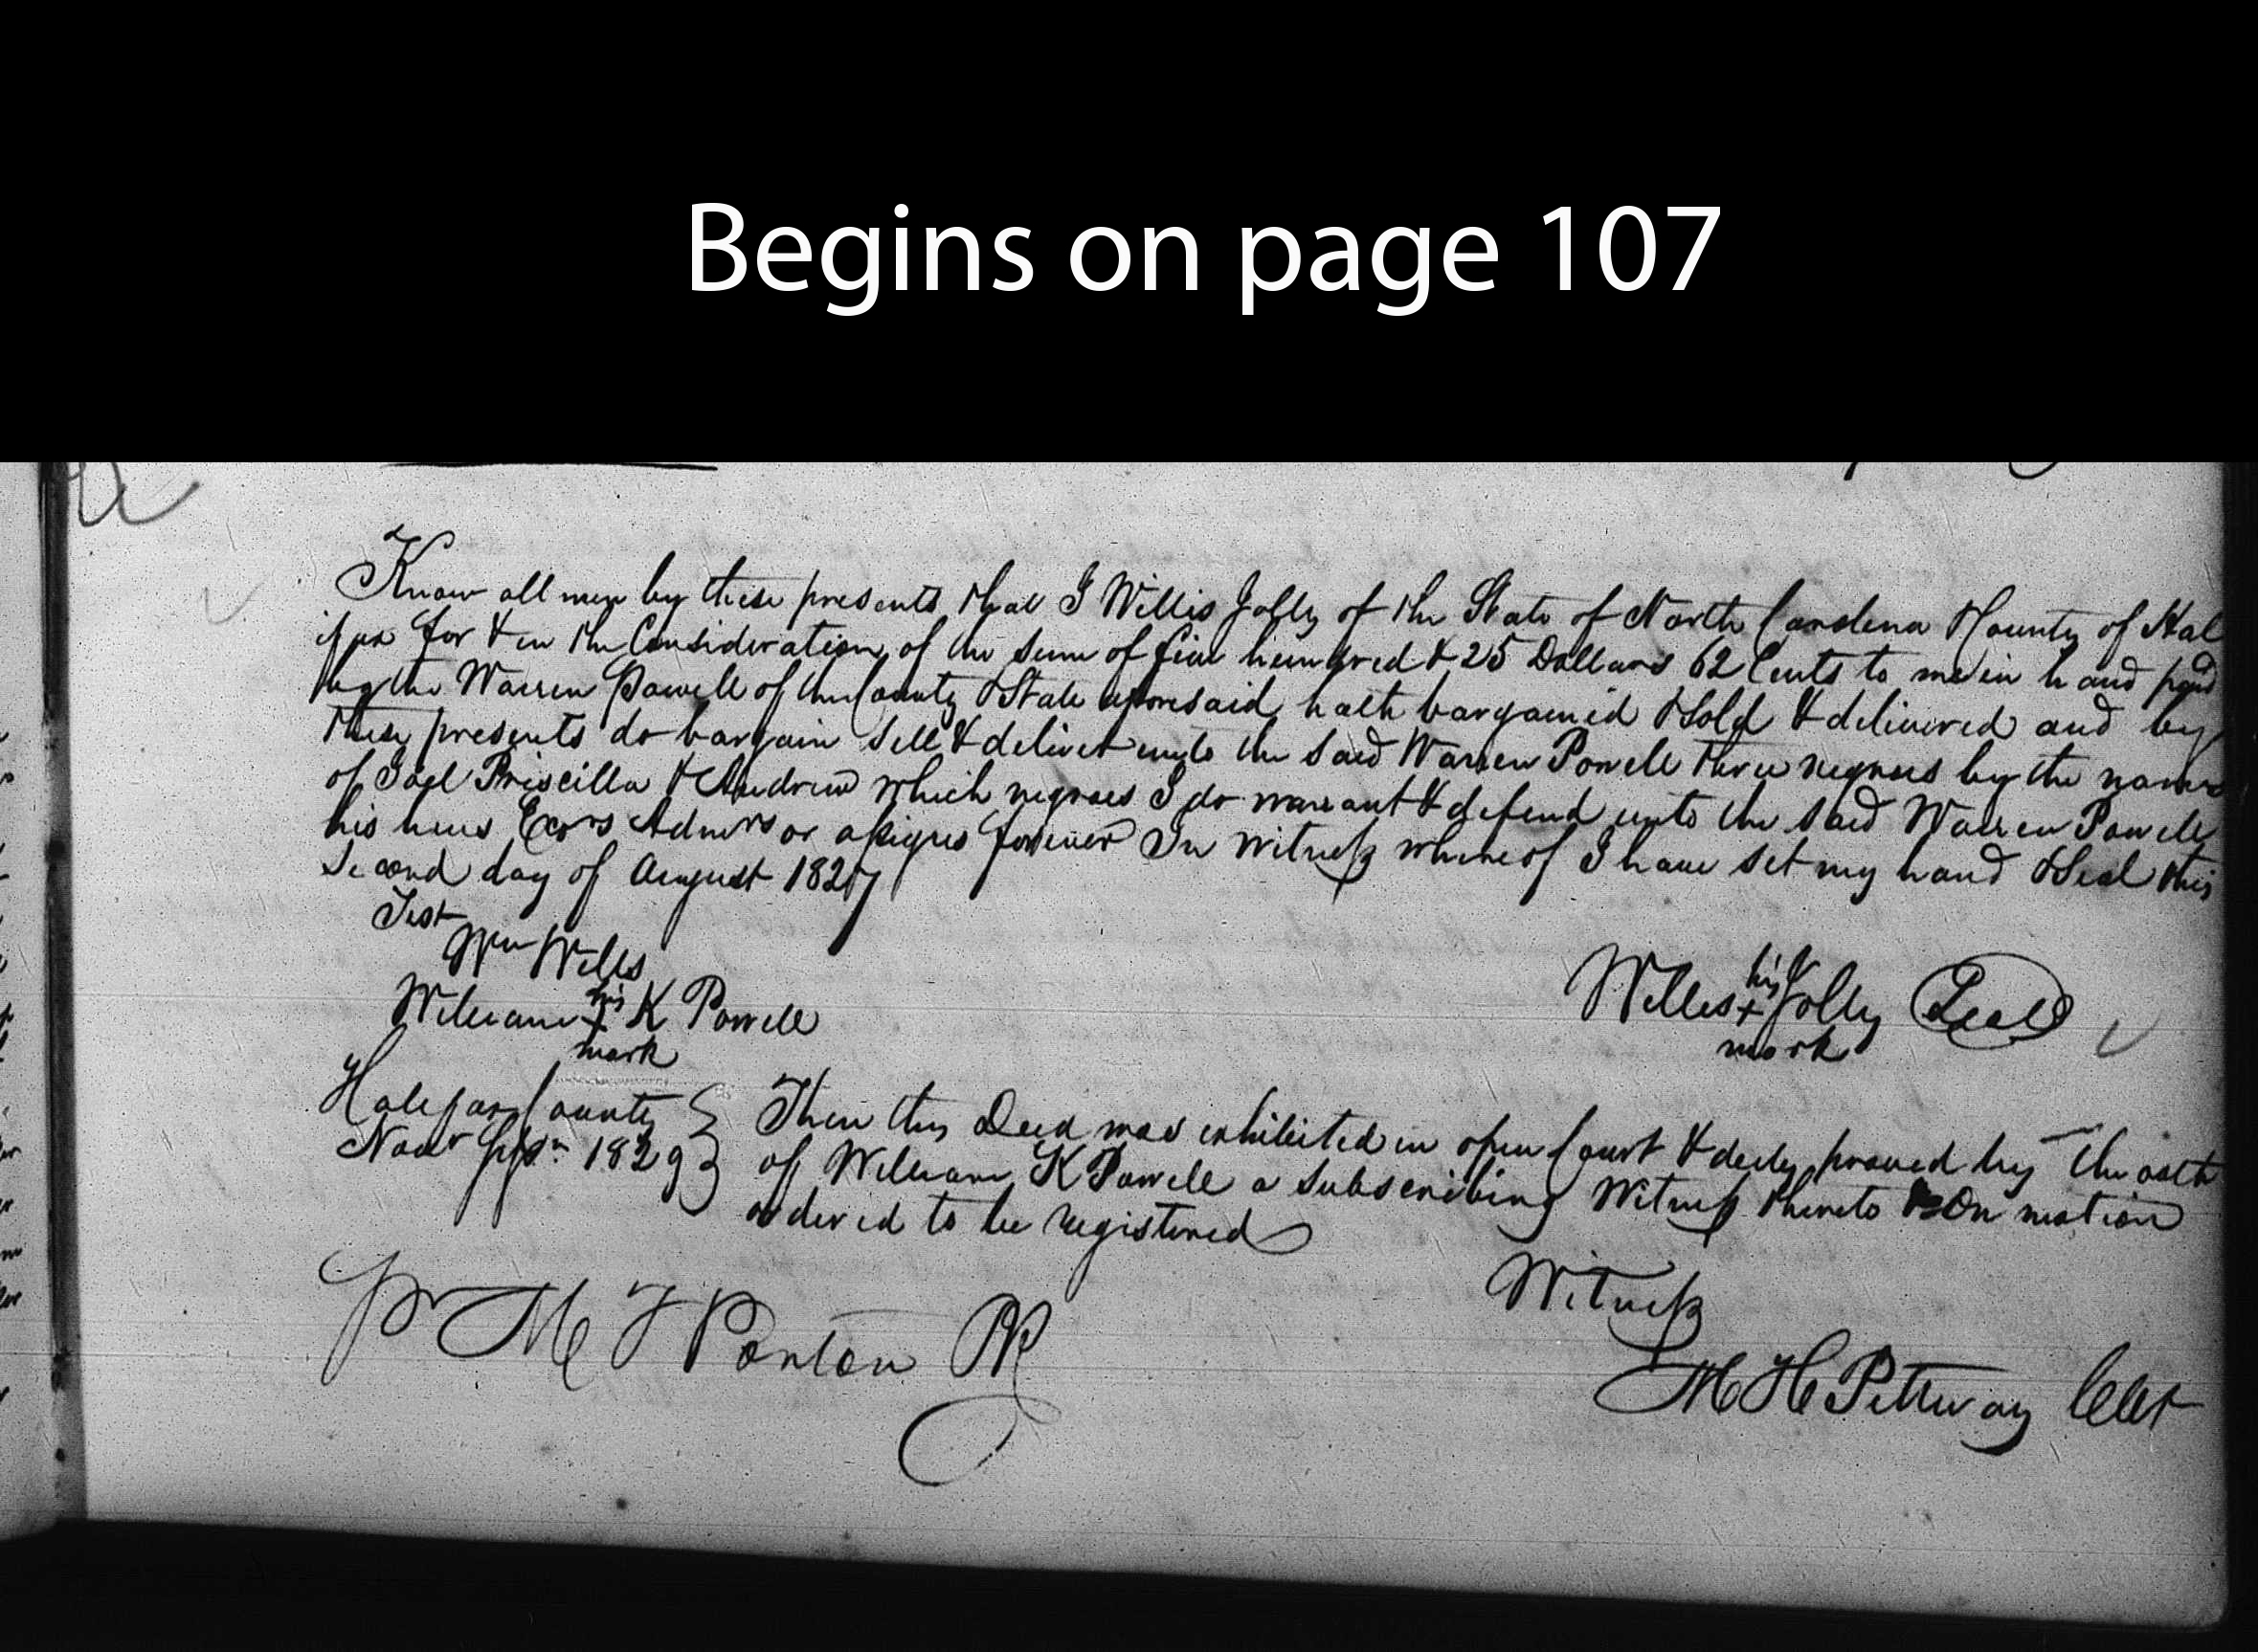 Begins on page 107
Know all men by these presents that I Willis Jolly of the State of North Carolina & County of Hal
ifax for & in the Consideration of the sum of five hundred & 25 Dollars 62 Cents to me in hand paid
by the Warren Powell of the County & State aforesaid hath bargained & Sold & delivered and by
these presents do bargain Sell & deliver unto the said Warren Powell three negroes by the names
of Joel Priscilla & Andrew which negroes I do warrant & defend unto the said Warren Powell
his heirs Exors Admrs or assigns forever In witness whereof I have set my hand & Seal this
Second day of August 1827
Test
Wm Wills
William his + K Powell
mark
Willis his + Jolly Seal
mark
Halifax County } Then this Deed was exhibited in open Court & duly proved by the oath
Novr Sessn 1829 } of William K Powell a Subscribing Witness thereto & On motion
ordered to be registered
Witness
Pr M T Ponton PR
M H Pettway Clk